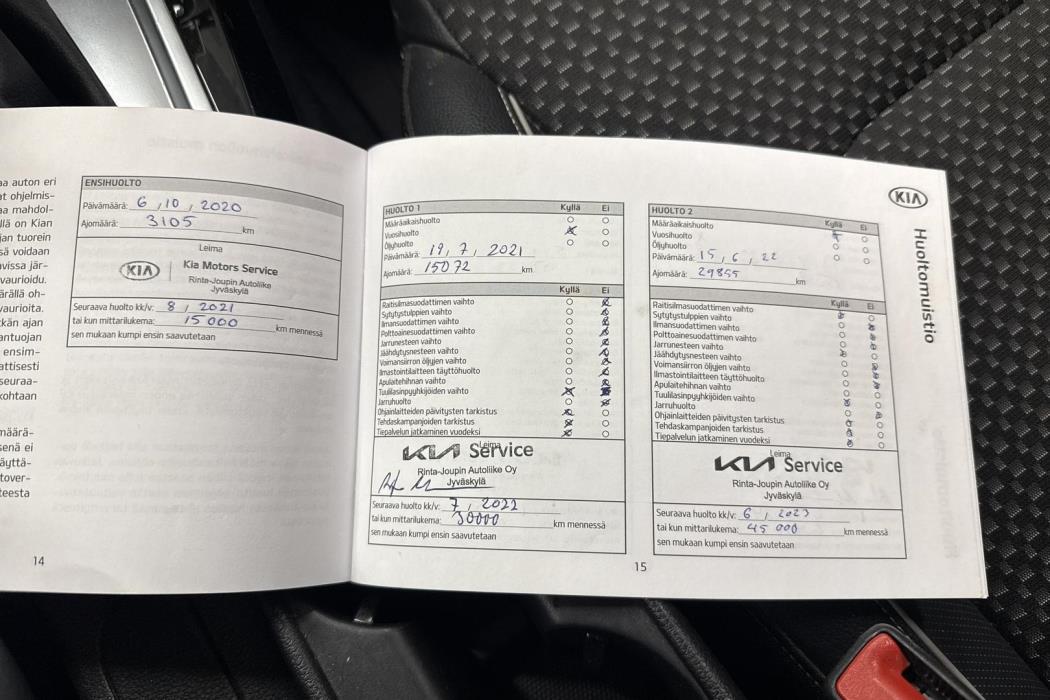 aa auton eri
at ohjelmis-
aa mahdol-
llä on Kian
jan tuorein
sä voidaan
vissa jär-
vaurioidu.
ärällä oh-
vaurioita.
kän ajan
antuojan
ensim-
attisesti
seuraa-
kohtaan
määrä-
senä ei
äyttä-
tover-
teesta
ENSIHUOLTO
Päivämäärä: 6 , 10 , 2020
Ajomäärä: 3105 km
Leima
KIA Kia Motors Service
Rinta-Joupin Autoliike
Jyväskylä
Seuraava huolto kk/v: 8 , 2021
tai kun mittarilukema: 15 000 km mennessä
sen mukaan kumpi ensin saavutetaan
14
HUOLTO 1 Kyllä Ei
Määräaikaishuolto
Vuosihuolto
Öljyhuolto
Päivämäärä: 19, 7, 2021
Ajomäärä: 15072 km
Kyllä Ei
Raitisilmasuodattimen vaihto
Sytytystulppien vaihto
Ilmansuodattimen vaihto
Polttoainesuodattimen vaihto
Jarrunesteen vaihto
Jäähdytysnesteen vaihto
Voimansiirron öljyjen vaihto
Ilmastointilaitteen täyttöhuolto
Apulaitehihnan vaihto
Tuulilasinpyyhkijöiden vaihto
Jarruhuolto
Ohjainlaitteiden päivitysten tarkistus
Tehdaskampanjoiden tarkistus
Tiepalvelun jatkaminen vuodeksi
Leima
KIA Service
Rinta-Joupin Autoliike Oy
Jyväskylä
Seuraava huolto kk/v: 7 , 2022
tai kun mittarilukema: 30000 km mennessä
sen mukaan kumpi ensin saavutetaan
15
KIA
Huoltomuistio
HUOLTO 2
Kyllä Ei
Määräaikaishuolto
Vuosihuolto
Öljyhuolto
Päivämäärä: 15, 6, 22
Ajomäärä: 29855 km
Kyllä Ei
Raitisilmasuodattimen vaihto
Sytytystulppien vaihto
Ilmansuodattimen vaihto
Polttoainesuodattimen vaihto
Jarrunesteen vaihto
Jäähdytysnesteen vaihto
Voimansiirron öljyjen vaihto
Ilmastointilaitteen täyttöhuolto
Apulaitehihnan vaihto
Tuulilasinpyyhkijöiden vaihto
Jarruhuolto
Ohjainlaitteiden päivitysten tarkistus
Tehdaskampanjoiden tarkistus
Tiepalvelun jatkaminen vuodeksi
Leima
KIA Service
Rinta-Joupin Autoliike Oy
Jyväskylä
Seuraava huolto kk/v: 6 , 2023
tai kun mittarilukema: 45 000 km mennessä
sen mukaan kumpi ensin saavutetaan